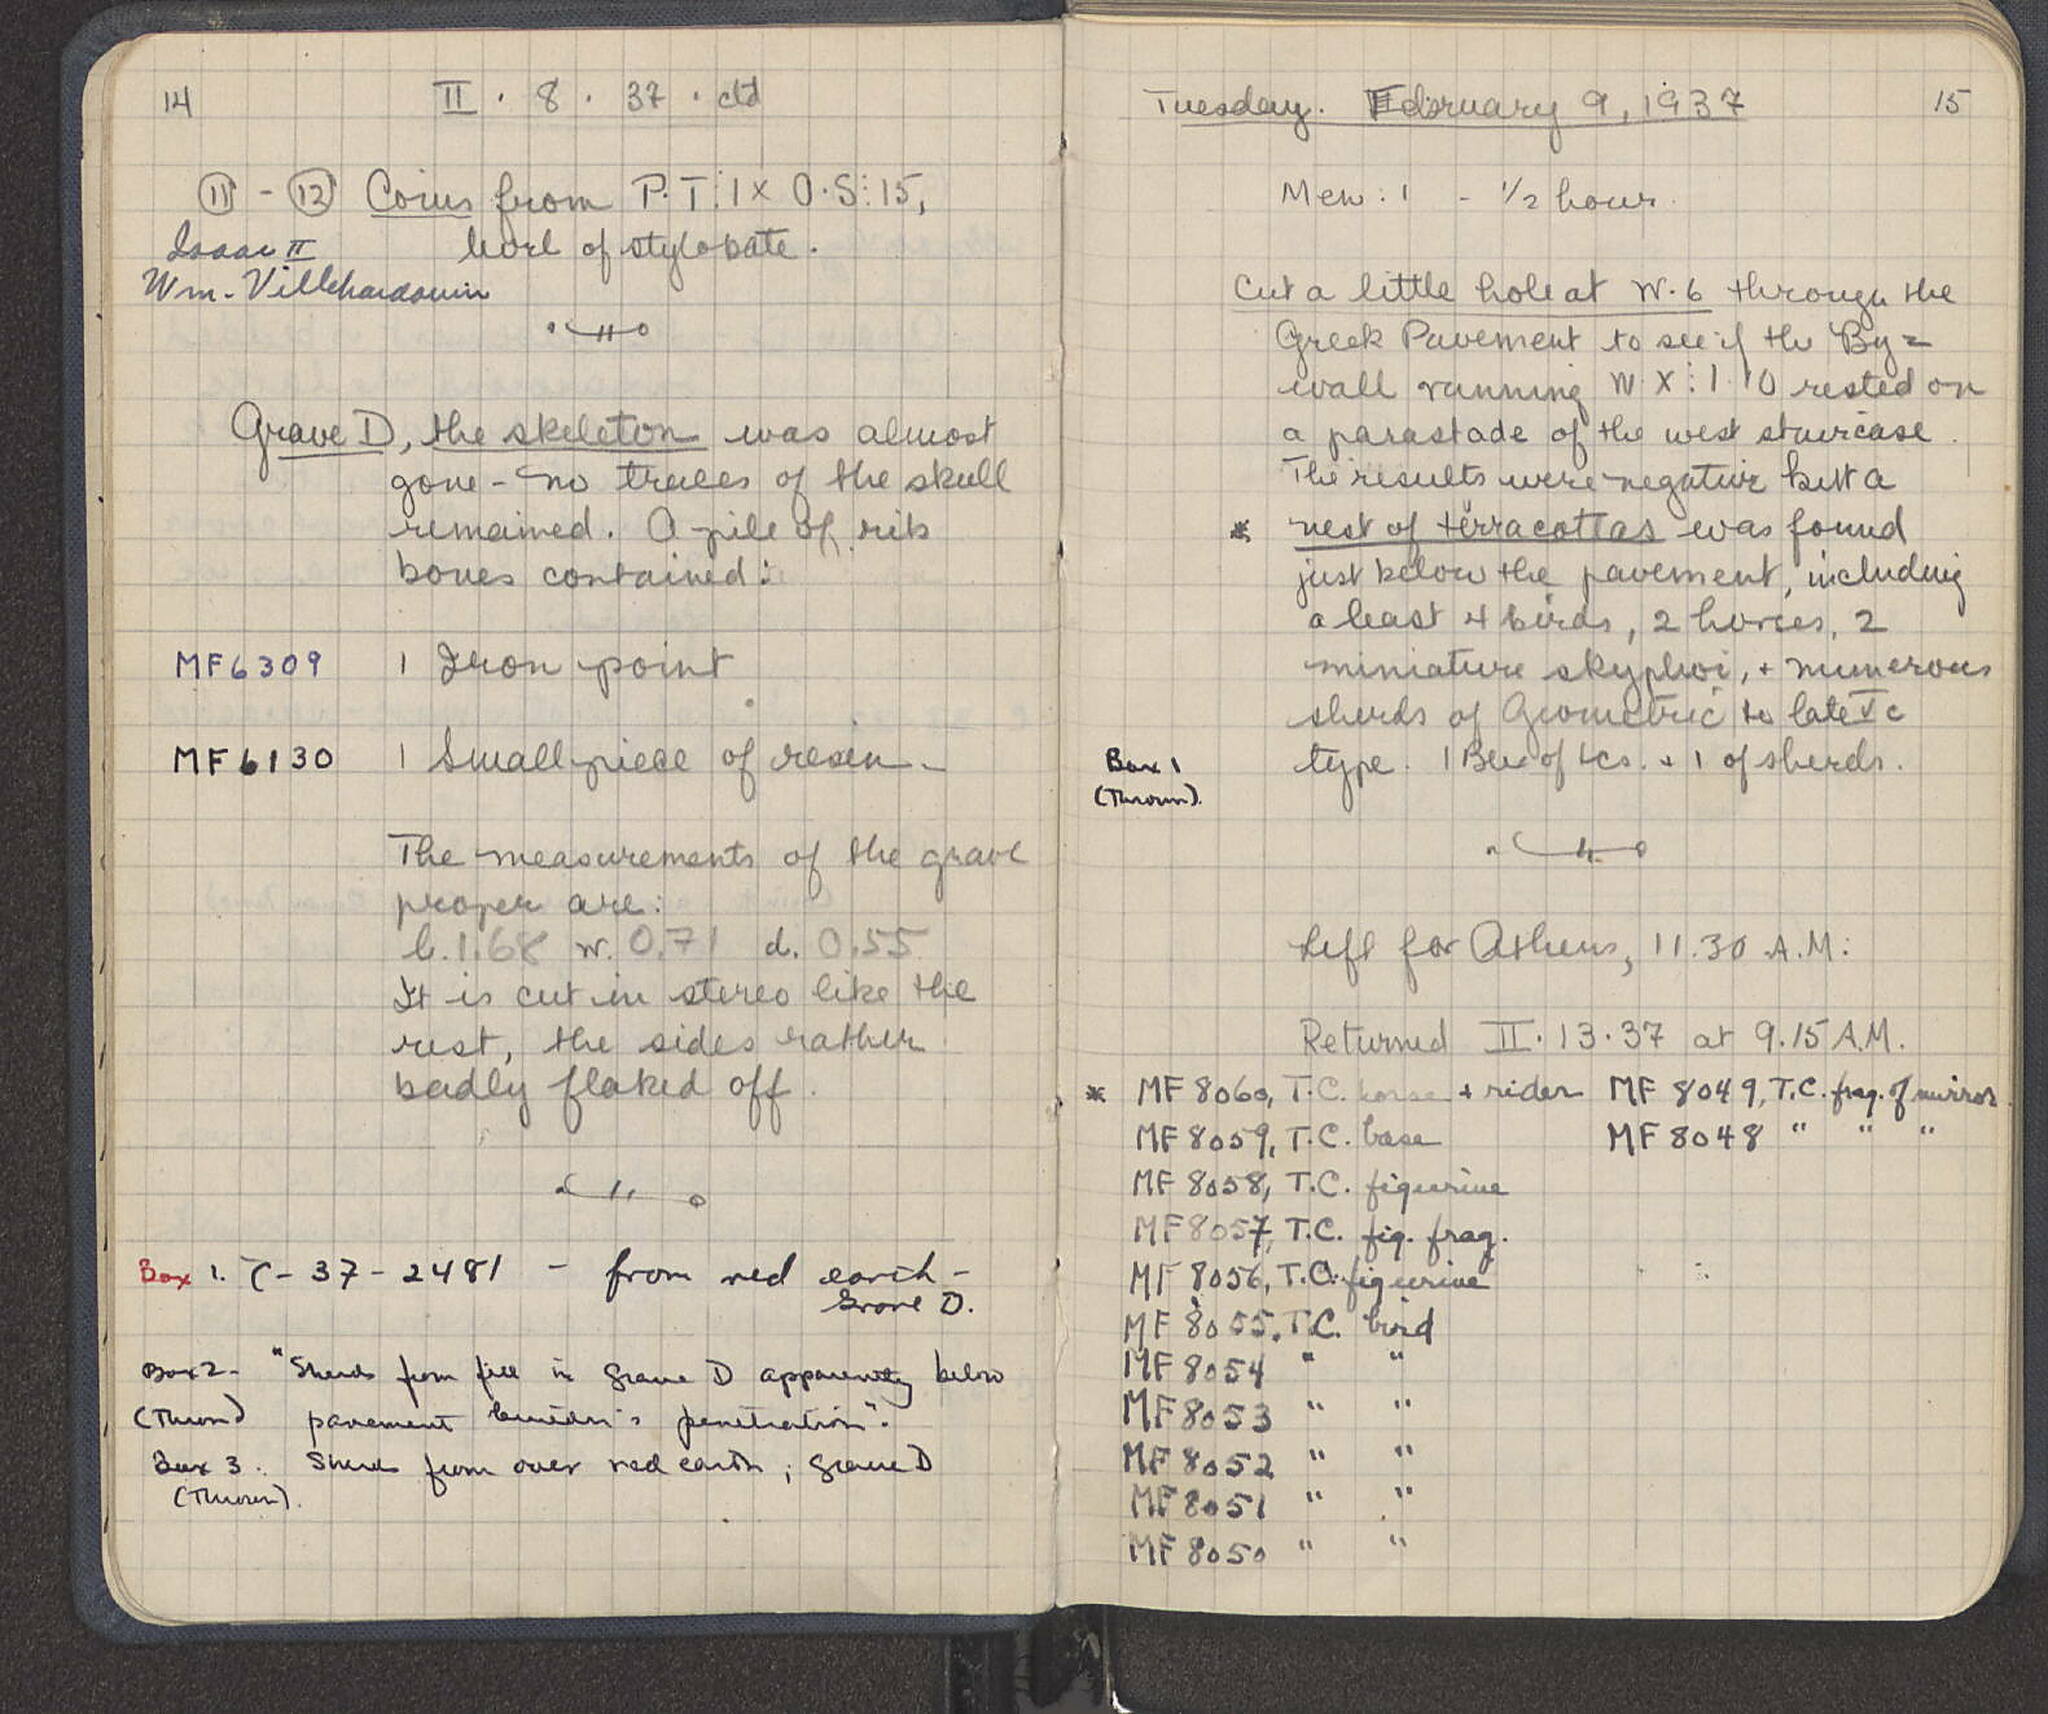 14
II . 8 . 37 . ctd
⑪ - ⑫ Coins from P.T:1 x O.S:15,
Isaac II level of stylobate.
Wm. Villehardouin
Grave D, the skeleton was almost
gone - no traces of the skull
remained. A pile of rib
bones contained:
MF6309 1 Iron point
MF6130 1 Small piece of resin
The measurements of the grave
proper are:
l. 1.68 w. 0.71 d. 0.55
It is cut in stereo like the
rest, the sides rather
badly flaked off.
Box 1. C-37-2481 - from red earth -
Grave D.
Box 2- "Sherds from fill in Grave D apparently below
(Thrown) pavement builder's penetration".
Box 3. Sherds from over red earth; Grave D
(Thrown).
Tuesday. February 9, 1937 15
Men: 1 - 1/2 hour.
Cut a little hole at W.6 through the
Greek Pavement to see if the By=
wall running W.X:1.10 rested on
a parastade of the west staircase.
The results were negative but a
* nest of terracottas was found
just below the pavement, including
a least 4 birds, 2 horses, 2
miniature skyphoi, + numerous
sherds of Geometric to late V c
Box 1 type. 1 Box of tcs. + 1 of sherds.
(Thrown).
Left for Athens, 11.30 A.M:
Returned II.13.37 at 9.15 A.M.
* MF 8060, T.C. horse + rider MF 8049, T.C. frag. of mirror
MF 8059, T.C. base MF 8048 " " "
MF 8058, T.C. figurine
MF 8057, T.C. fig. frag.
MF 8056, T.C. figurine
MF 8055. T.C. bird
MF 8054 " "
MF 8053 " "
MF 8052 " "
MF 8051 " "
MF 8050 " "